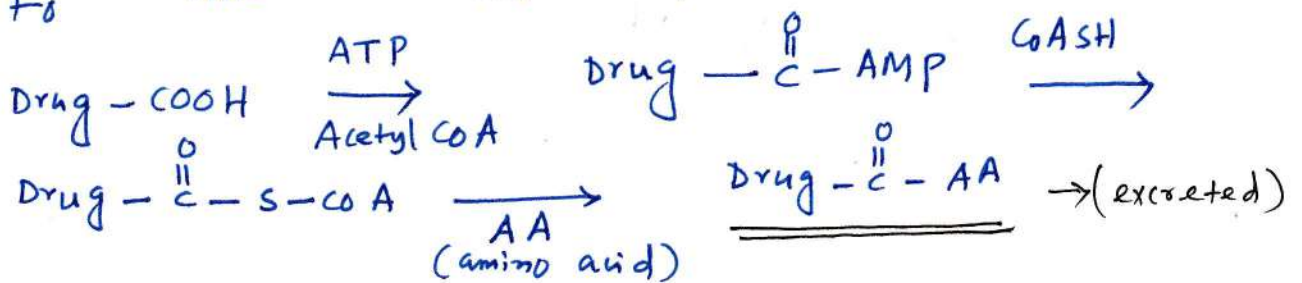 to
Drug - COOH ATP → Acetyl CoA Drug - C(=O) - AMP CoASH →
Drug - C(=O) - S - CO A → AA (amino acid) Drug - C(=O) - AA → (excreted)